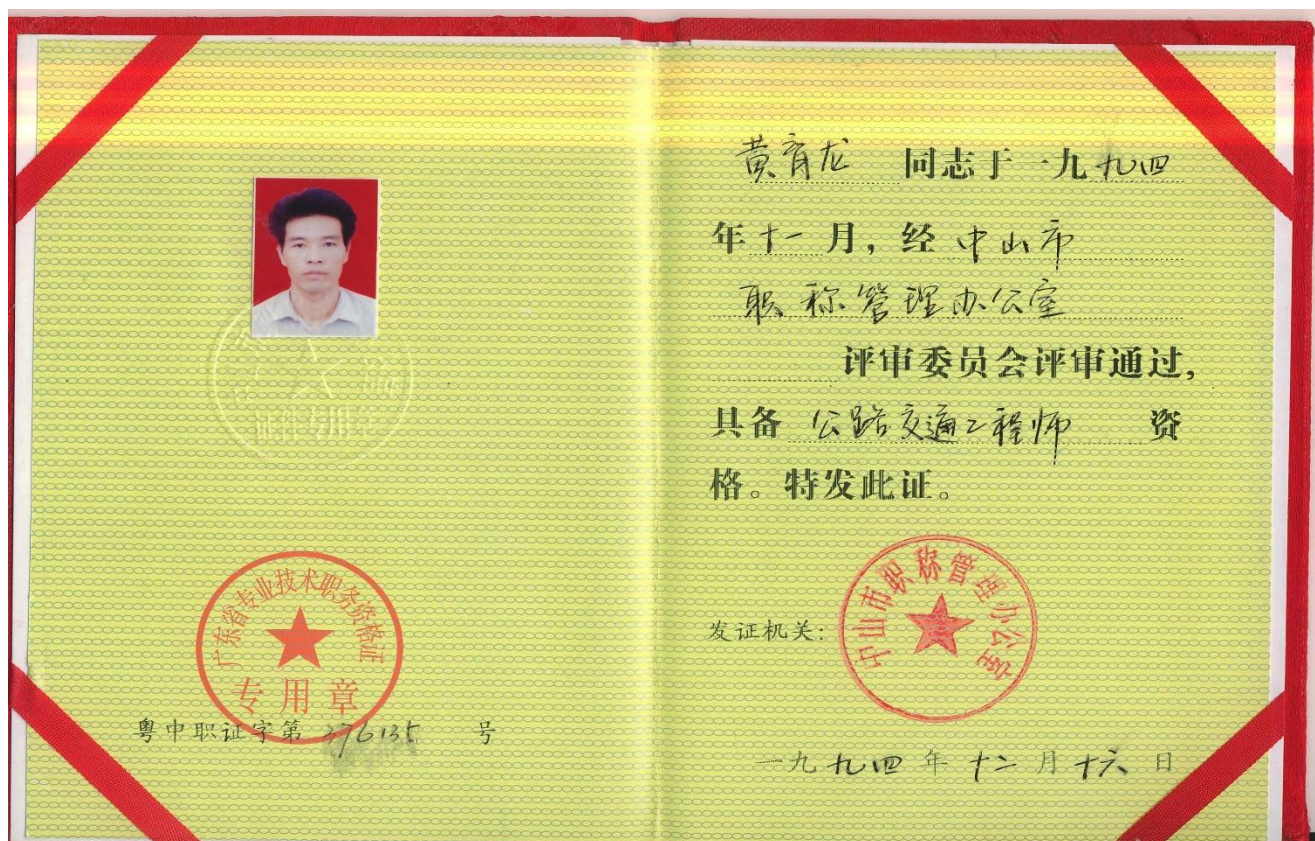 广东省专业技术职务资格证
专用章
粤中职证字第 376135 号
黄育龙 同志于一九九四
年十一月，经中山市
职称管理办公室
评审委员会评审通过，
具备 公路交通工程师 资
格。特发此证。
发证机关：
中山市职称管理办公室
一九九四年十二月十六日